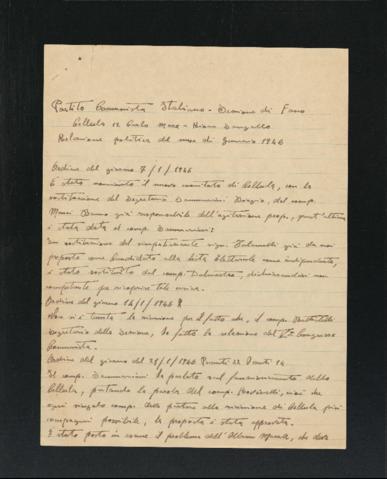 Partito Comunista Italiano - Sezione di Fano
Cellula 12 Carlo Marx - Bianco
Relazione politica del mese di Gennaio 1946
Ordine del giorno 7/1/1946
È stato nominato il nuovo comitato di Cellula, con la
sostituzione del Segretario
Bruno già responsabile dell'agitazione prop.,
è stata data al comp.
In sostituzione del simpatizzante sign. già da noi
proposto come Candidato alla lista elettorale come indipendente,
è stato sostituito dal comp. dichiarandosi non
competente per ricoprire tale carica.
Ordine del giorno 14/1/1946
Non si è tenuta la riunione per il fatto che, il comp.
Segretario della Sezione, ha fatto la relazione del Congresso
Comunista.
Ordine del giorno del 28/1/1946 Presenti 22
Il comp. ha parlato sul funzionamento della
Cellula, portando la parola del comp.
ogni singolo comp. deve portare alla riunione di Cellula più
compagni possibile, la proposta è stata approvata.
È stato posto in esame il problema dell'Album che deve